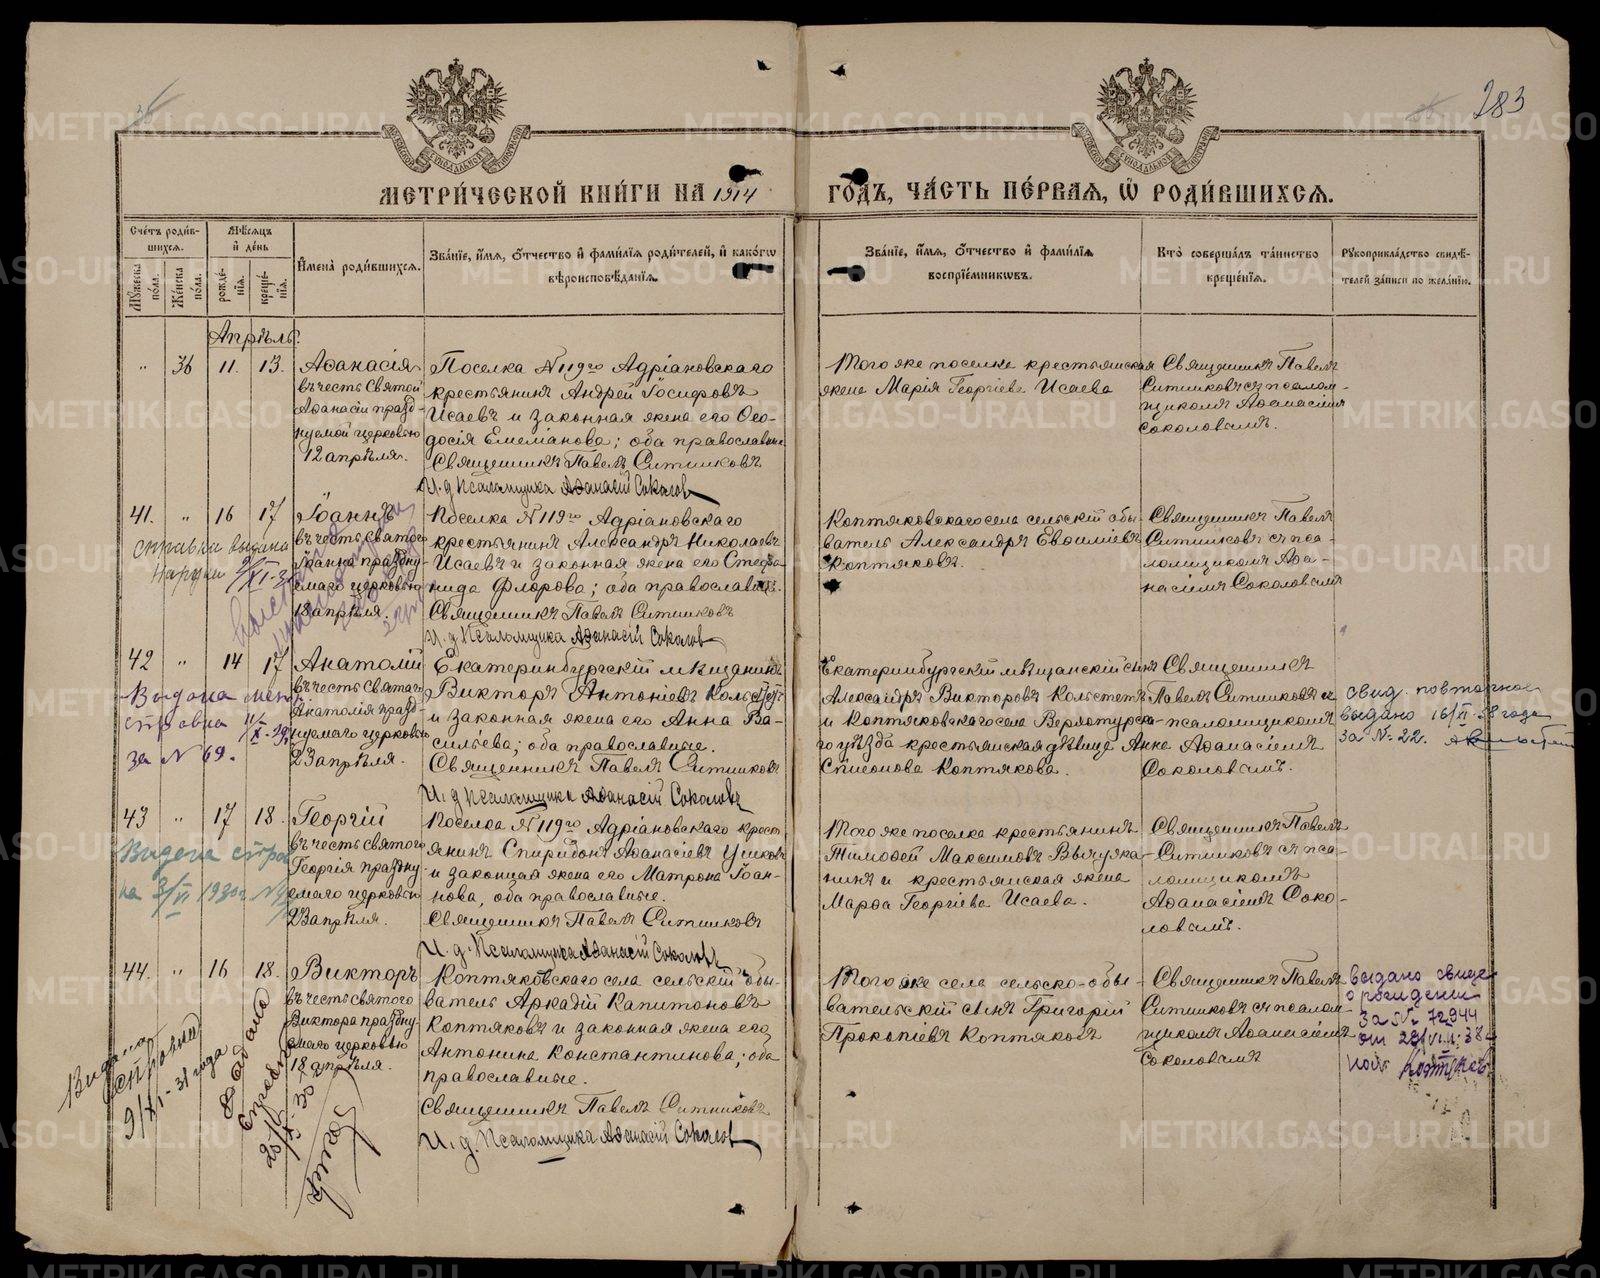 283
МЕТРИ́ЧЕСКОЙ КНИ́ГИ НА 1914 ГОДЪ, ЧА́СТЬ ПЕ́РВАЯ, Ѿ РОДИ́ВШИХСЯ.
Сче́тъ роди́в-
шихся.
Мѣ́сяцъ
и де́нь
Имена̀ роди́вшихся.
Зва́нїе, и́мя, о́тчество и фами́лїя роди́телей, и како́гѡ
вѣроисповѣ́данїя.
Зва́нїе, и́мя, о́тчество и фами́лїя
воспрїе́мникѡвъ.
Кто̀ соверша́лъ та́инство
креще́нїя.
Рꙋкоприкла́дство свидѣ́-
телей за́писи по жела́нїю.
Мꙋ́жеска
по́ла.
Же́нска
по́ла.
рожде́-
нїя.
креще́-
нїя.
Апрѣль.
" 36 11. 13.
Аѳанасія
въ честь Святой
Аѳанасіи празд-
нуемой церковью
12 апрѣля.
Поселка N 119го Адріановскаго
крестьянинъ Андрей Іосифовъ
Исаевъ и законная жена его Ѳео-
досія Емеліанова; оба православные
Священникъ Павелъ Ситниковъ
И. д. Псаломщика Аѳанасій Соколовъ
Того же поселка крестьянская
жена Марія Георгіева Исаева
Священникъ Павелъ
Ситниковъ съ псалом-
щикомъ Аѳанасіемъ
Соколовымъ.
41. " 16 17
справка выдана
Іоаннъ
въ честь Святого
Іоанна праздну-
емаго церковью
18 апрѣля.
Поселка N 119го Адріановскаго
крестьянинъ Александръ Николаевъ
Исаевъ и законная жена его Стефа-
нида Флорова; оба православные.
Священникъ Павелъ Ситниковъ
И. д. Псаломщика Аѳанасій Соколовъ
Коптяковскаго села сельскій обы-
ватель Александръ Евѳиміевъ
Коптяковъ.
Священникъ Павелъ
Ситниковъ съ пса-
ломщикомъ Аѳа-
насіемъ Соколовымъ
42 " 14 17
Выдана метр
справка 11/X-29г.
за N 69.
Анатолій
въ честь Святаго
Анатолія празд-
нуемаго церковью
23 апрѣля.
Екатеринбургскій мѣщанинъ
Викторъ Антоніевъ Кольстетъ
и законная жена его Анна Ва-
сильева; оба православные.
Священникъ Павелъ Ситниковъ
И. д. Псаломщика Аѳанасій Соколовъ
Екатеринбургскій мѣщанскій сынъ
Александръ Викторовъ Кольстетъ
и Коптяковскаго села Верхотурска-
го уѣзда крестьянская дѣвица Анна
Симеонова Коптякова.
Священникъ
Павелъ Ситниковъ съ
псаломщикомъ
Аѳанасіемъ
Соколовымъ.
свид. повторное
выдано 16/XI-38 года
за N: 22.
43 " 17 18.
Выдана справ
ка 3/VI 1930г
Георгій
въ честь святого
Георгія праздну-
емаго церковью
23 апрѣля.
Поселка N 119го Адріановскаго крест-
янинъ Спиридонъ Аѳанасіевъ Ушковъ
и законная жена его Матрона Іоан-
нова, оба православные.
Священникъ Павелъ Ситниковъ
И. д. Псаломщика Аѳанасій Соколовъ
Того же поселка крестьянинъ
Тимоѳей Максимовъ Вычужа-
нинъ и крестьянская жена
Марѳа Георгіева Исаева.
Священникъ Павелъ
Ситниковъ съ пса-
ломщикомъ
Аѳанасіемъ Соко-
ловымъ.
44. " 16 18.
Выдана
справка
9/XI-31 года
Выдана
справка
Викторъ
въ честь святого
Виктора праздну-
емаго церковью
18 апрѣля.
Коптяковскаго села сельскій обы-
ватель Аркадій Капитоновъ
Коптяковъ и законная жена его
Антонина Константинова; оба
православные.
Священникъ Павелъ Ситниковъ
И. д. Псаломщика Аѳанасій Соколовъ
Того же села сельско-обы-
вательскій сынъ Григорій
Прокопіевъ Коптяковъ
Священникъ Павелъ
Ситниковъ съ псалом-
щикомъ Аѳанасіемъ
Соколовымъ
выдано свидет
о рождении
за N: 72944
от 28/VIII-38г
METRIKI.GASO-URAL.RU